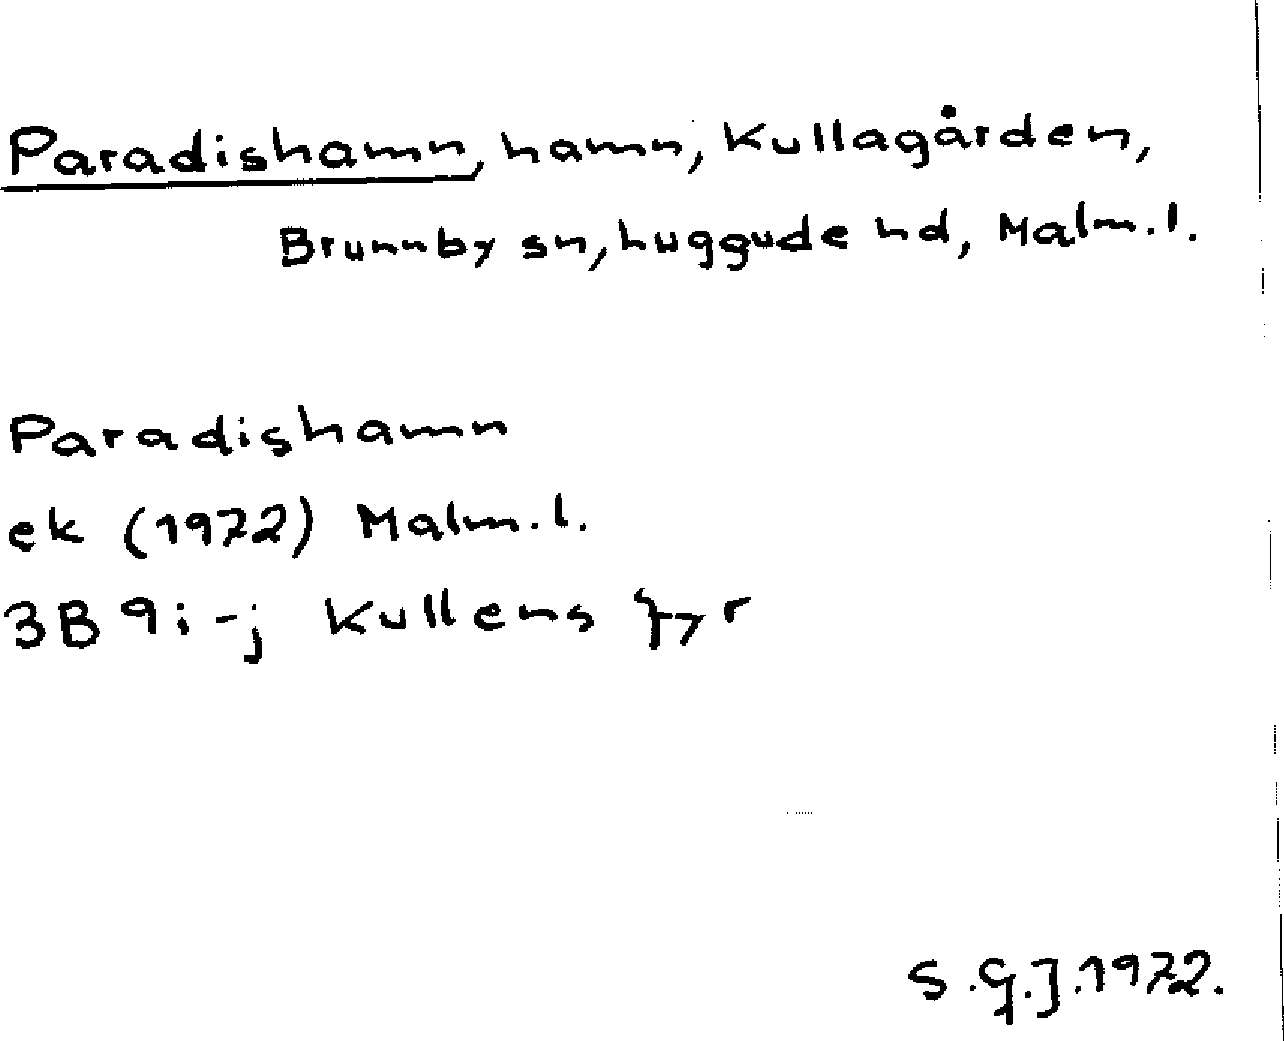 Paradishamn, hamn, Kullagården,
Brunnby sn, Luggude hd, Malm.l.
Paradishamn
ek (1972) Malm.l.
3B 9i-j Kullens fyr
S.G.J.1972.